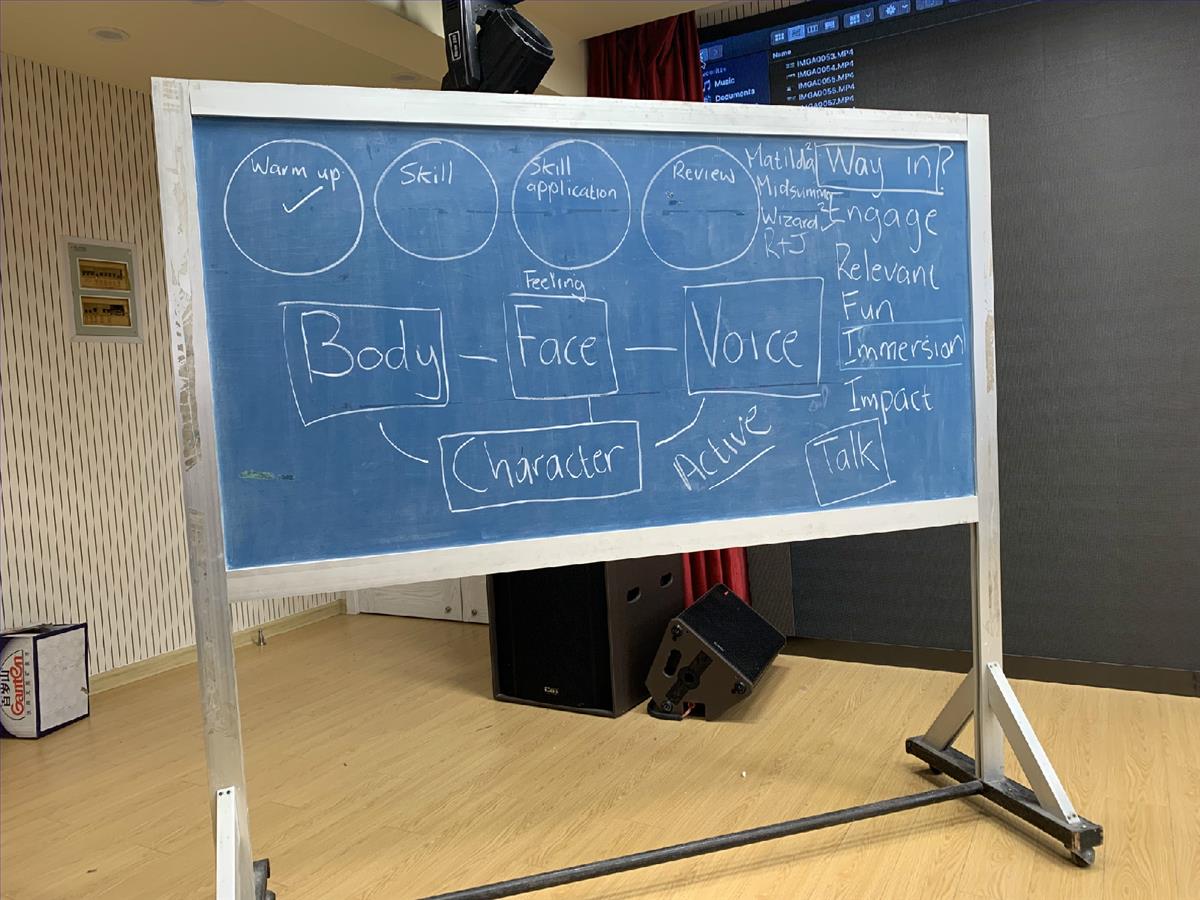 Name
IMGA0053.MP4
IMGA0054.MP4
IMGA0055.MP4
IMGA0056.MP4
Music
Documents
Warm up ✓
Skill
Skill
application
Review
Matilda²
Midsummer
Wizard²
R+J
Way in?
Engage
Relevant
Fun
Immersion
Impact
Talk
Feeling
Body – Face – Voice
Character
Active
Ganten
百岁山